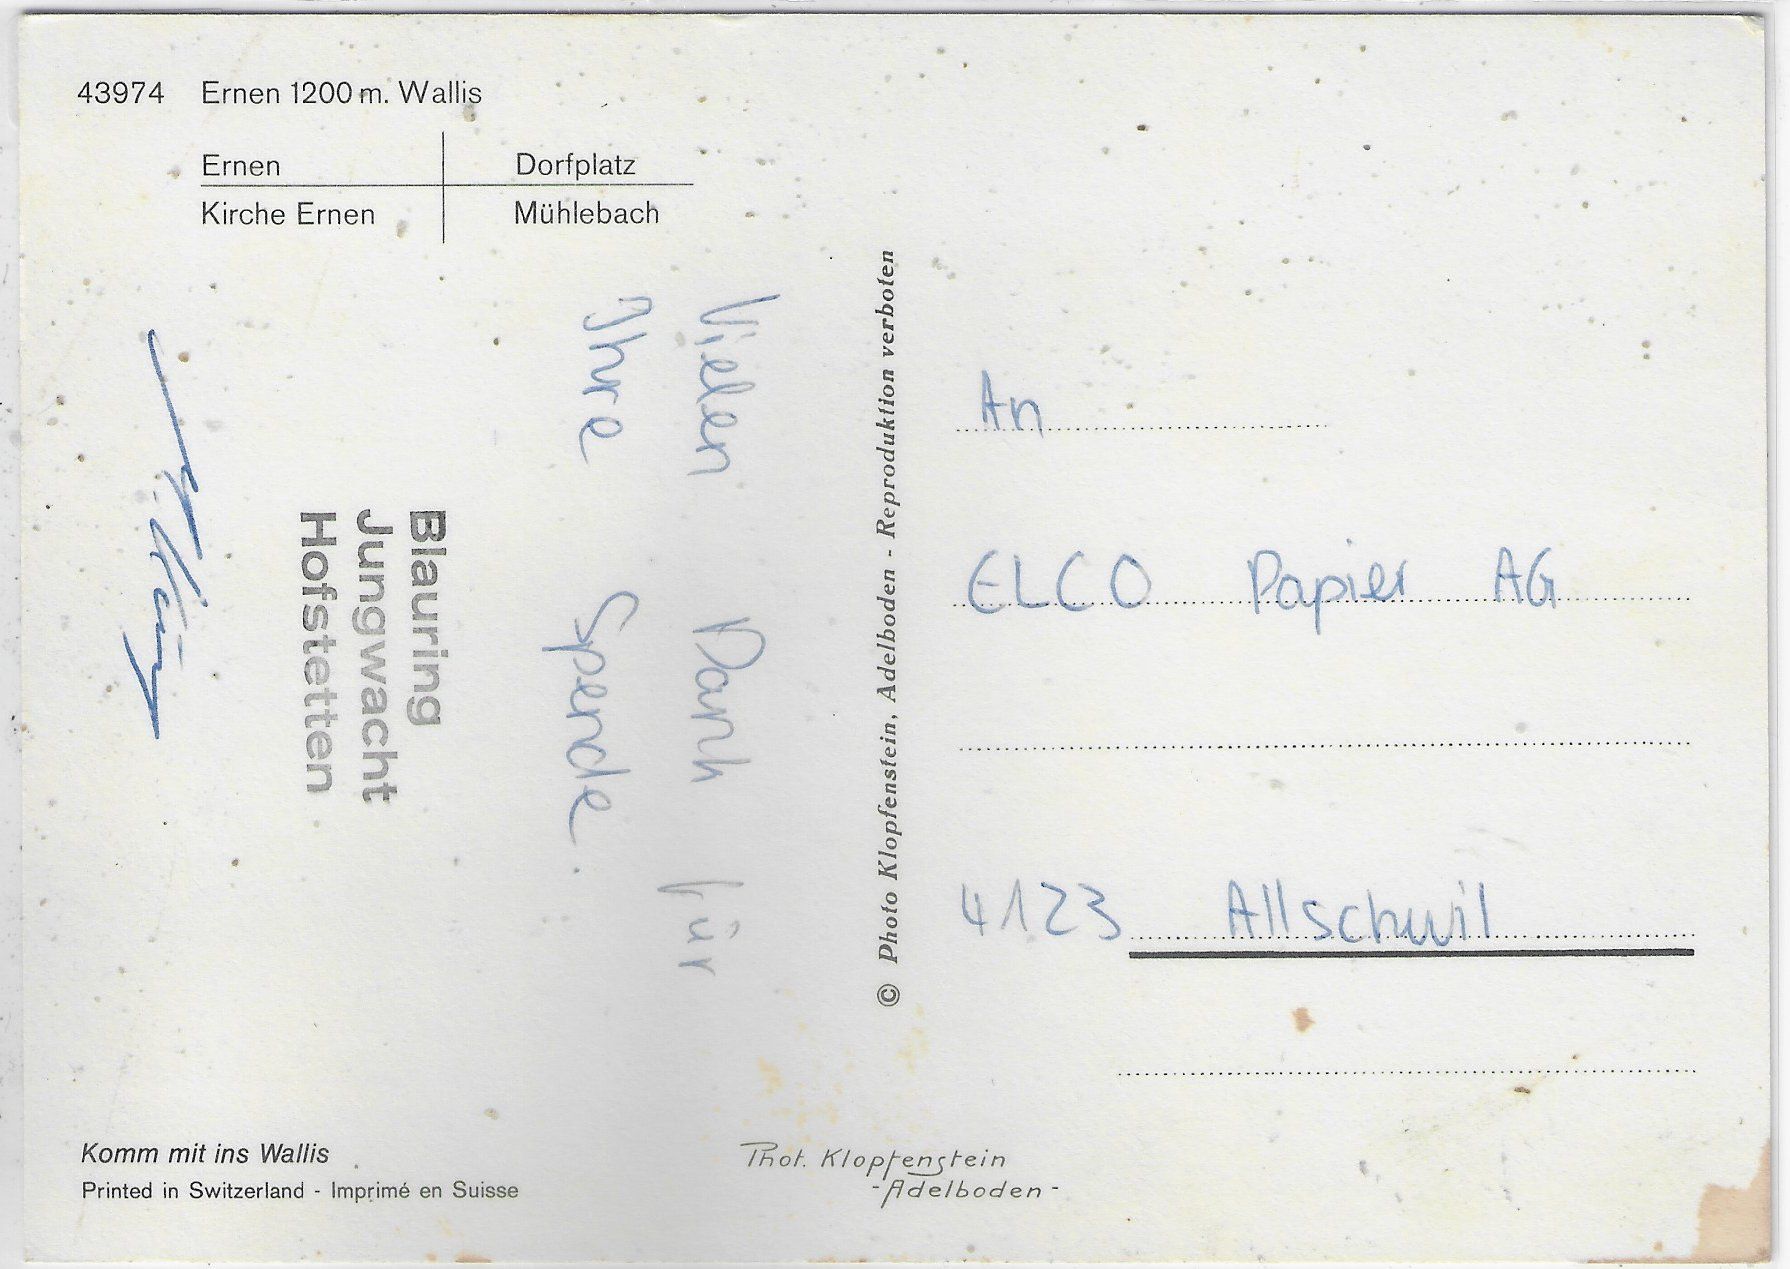 43974 Ernen 1200 m. Wallis
Ernen Dorfplatz
Kirche Ernen Mühlebach
Vielen Dank für
Ihre Spende.
Blauring
Jungwacht
Hofstetten
© Photo Klopfenstein, Adelboden - Reproduktion verboten
An
ELCO Papier AG
4123 Allschwil
Komm mit ins Wallis
Printed in Switzerland - Imprimé en Suisse
Phot. Klopfenstein
-Adelboden-